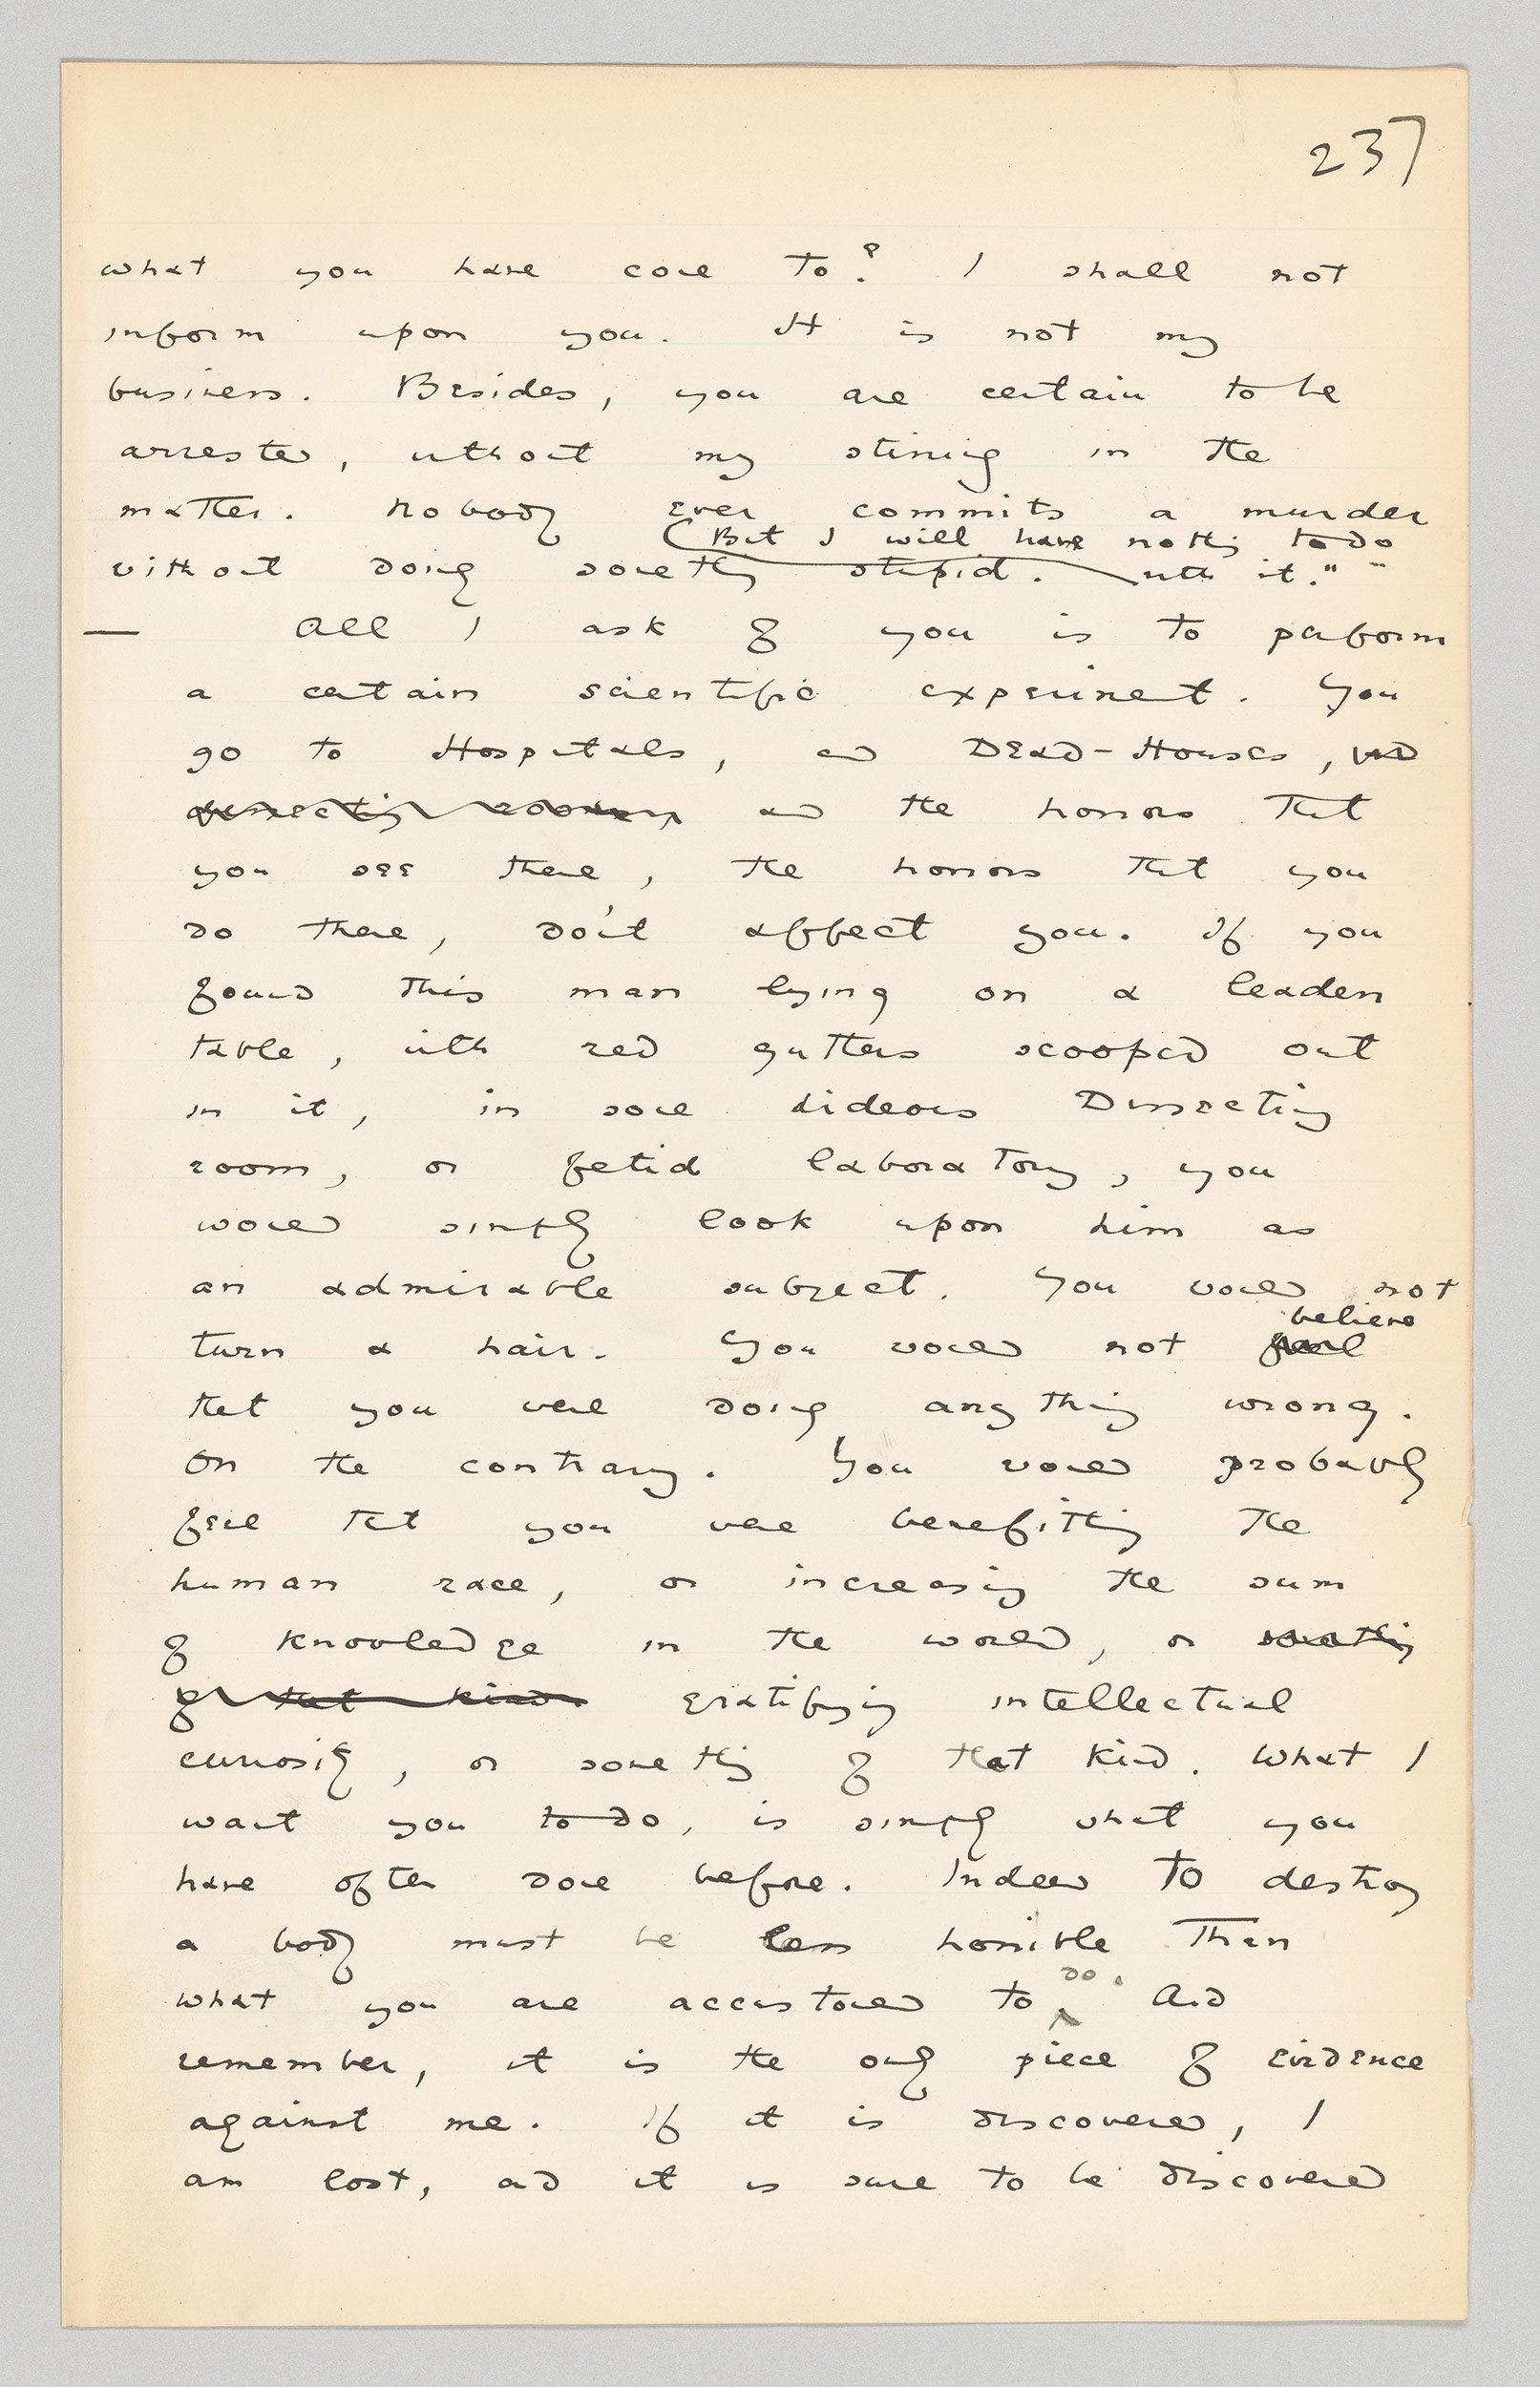 237
what you have come to? I shall not
inform upon you. It is not my
business. Besides, you are certain to be
arrested, without my stirring in the
matter. Nobody ever commits a murder
But I will have nothing to do
without doing something stupid. with it."
— All I ask of you is to perform
a certain scientific experiment. You
go to Hospitals, and Dead-Houses, and
dissecting rooms, and the horrors that
you see there, the horrors that you
do there, don't affect you. If you
found this man lying on a leaden
table, with red gutters scooped out
in it, in some hideous Dissecting
room, or fetid laboratory, you
would simply look upon him as
an admirable subject. You would not
believe
turn a hair. You would not feel
that you were doing anything wrong.
On the contrary. You would probably
feel that you were benefitting the
human race, or increasing the sum
of knowledge in the world, or something
of that kind. gratifying intellectual
curiosity, or something of that kind. What I
want you to do, is simply what you
have often done before. Indeed to destroy
a body must be less horrible than
do.
what you are accustomed to And
remember, it is the only piece of evidence
against me. If it is discovered, I
am lost, and it is sure to be discovered